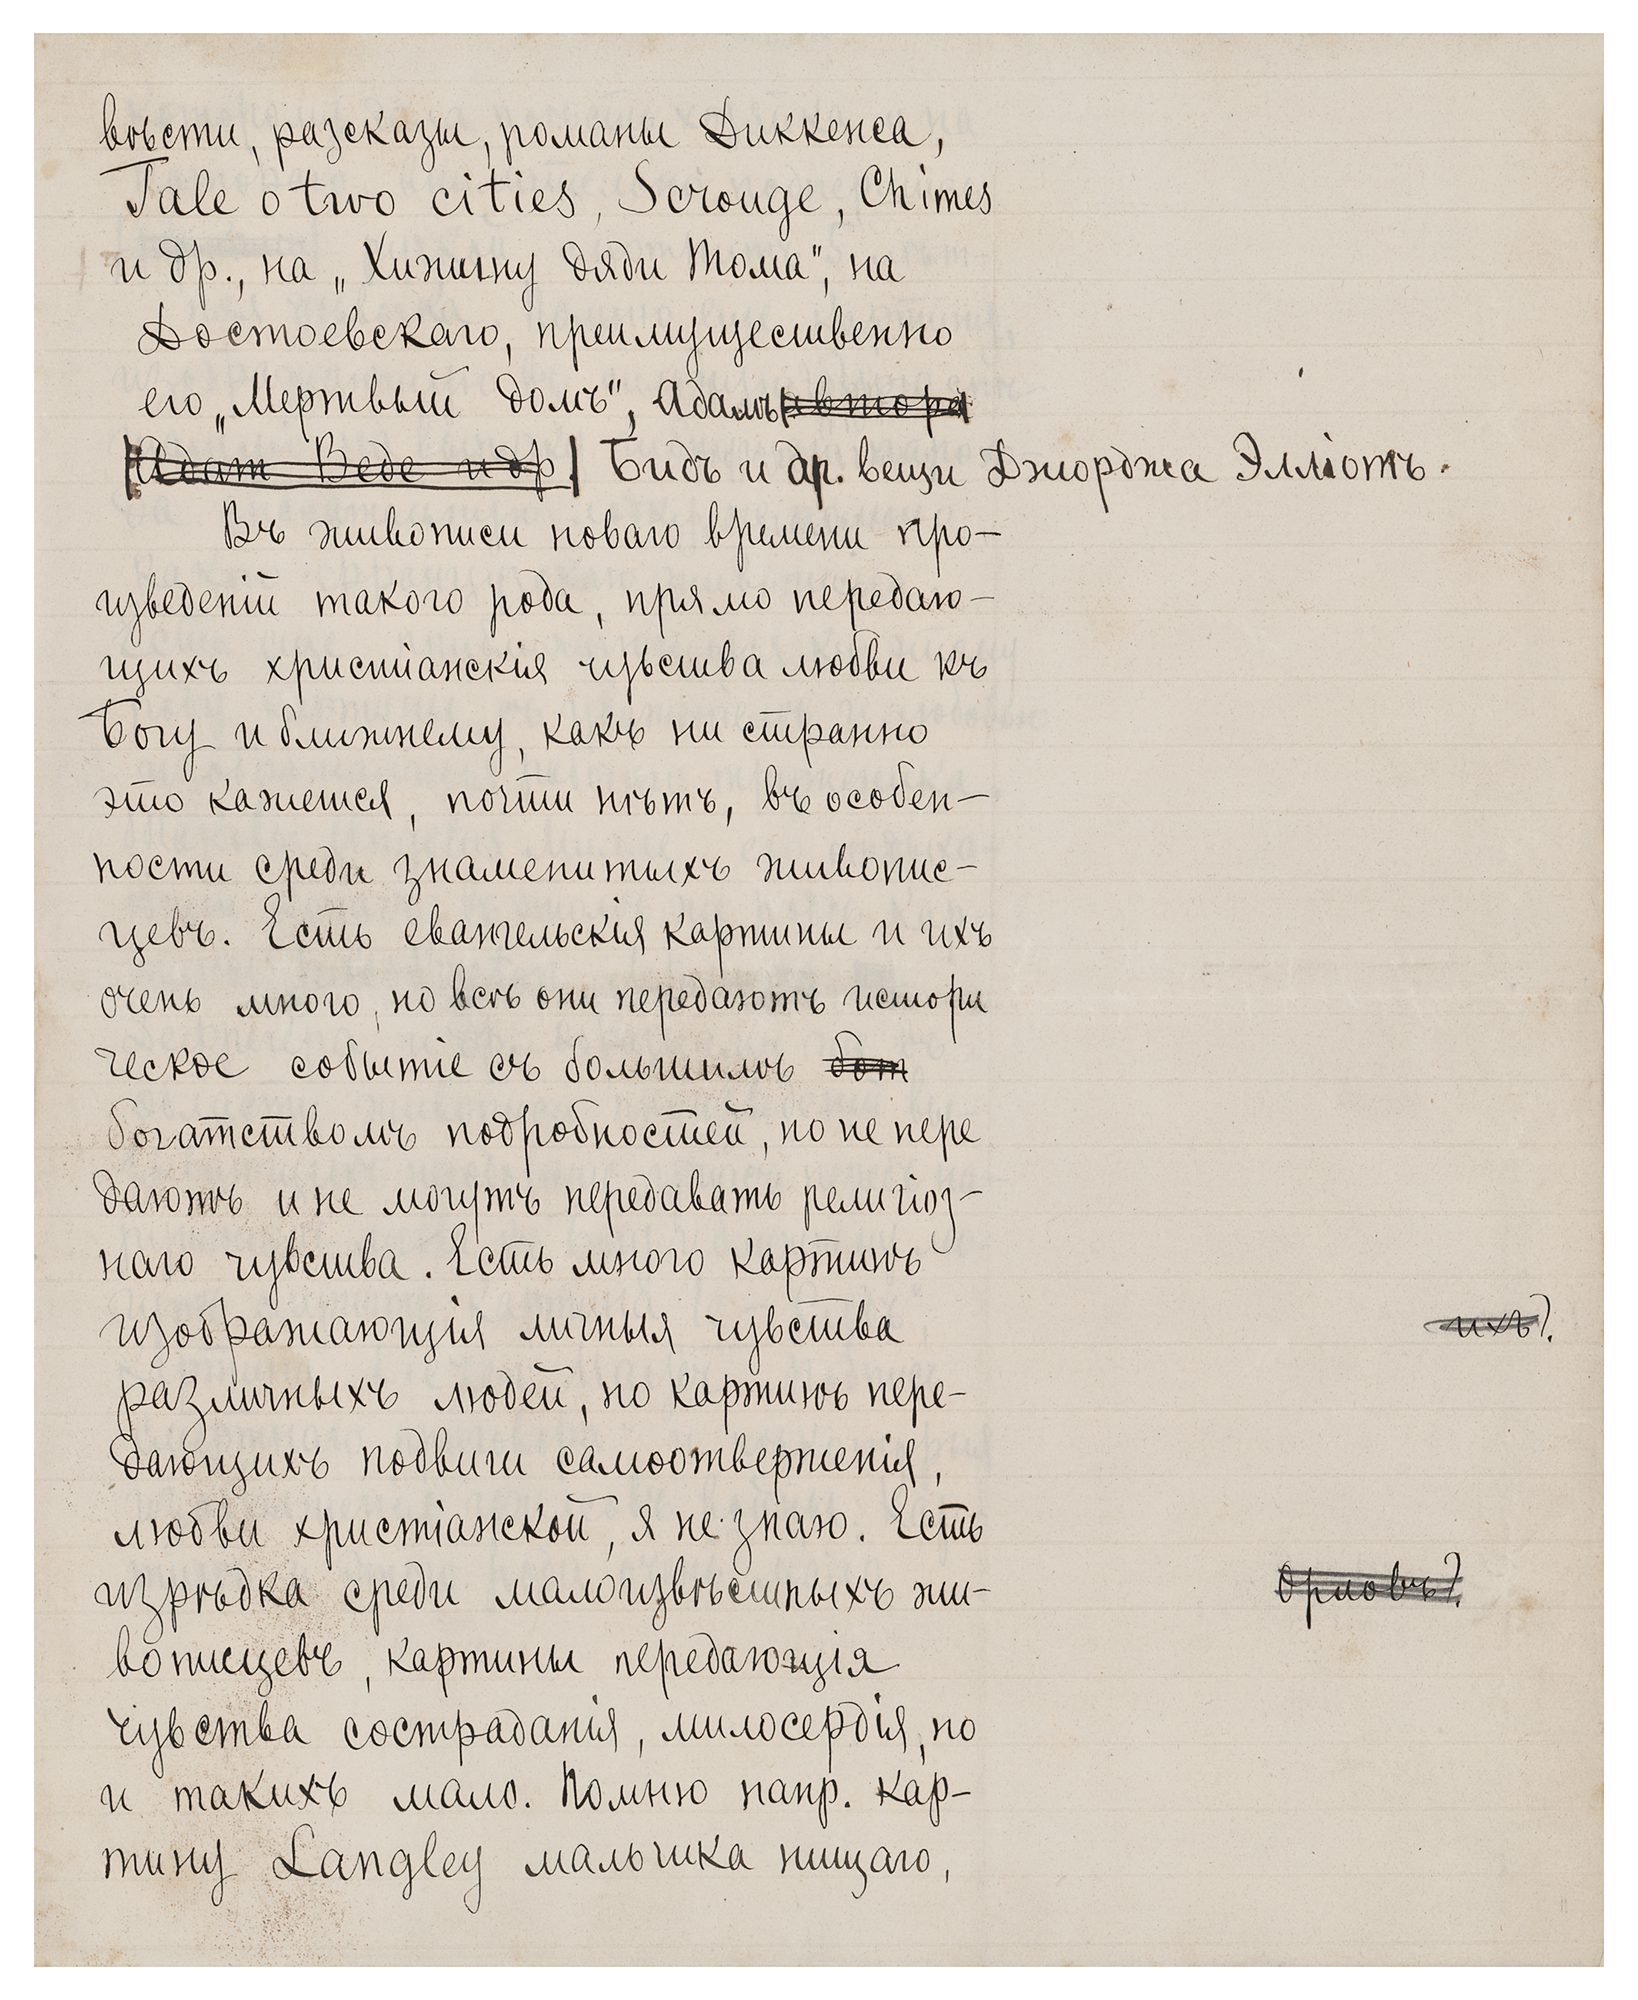 вѣсти, разсказы, романы Диккенса,
Tale o two cities, Scrouge, Chimes
и др., на „Хижину дяди Тома", на
Достоевскаго, преимущественно
его „Мертвый домъ", Адамъ автора
Адат Веде и др Бидъ и др. вещи Джорджа Элліотъ.
Въ живописи новаго времени про-
изведеній такого рода, прямо передаю-
щихъ христіанскія чувства любви къ
Богу и ближнему, какъ ни странно
это кажется, почти нѣтъ, въ особен-
ности среди знаменитыхъ живопис-
цевъ. Есть евангельскія картины и ихъ
очень много, но всѣ они передаютъ истори
ческое событіе съ большимъ бот
богатствомъ подробностей, но не пере
даютъ и не могутъ передавать религіоз-
наго чувства. Есть много картинъ
изображающія личныя чувства
ихъ?.
различныхъ людей, но картинъ пере-
дающихъ подвиги самоотверженія,
любви христіанской, я не знаю. Есть
изрѣдка среди малоизвѣстныхъ жи-
Орловъ?.
вописцевъ, картины передающія
чувства состраданія, милосердія, но
и такихъ мало. Помню напр. кар-
тину Langley мальчика нищаго,